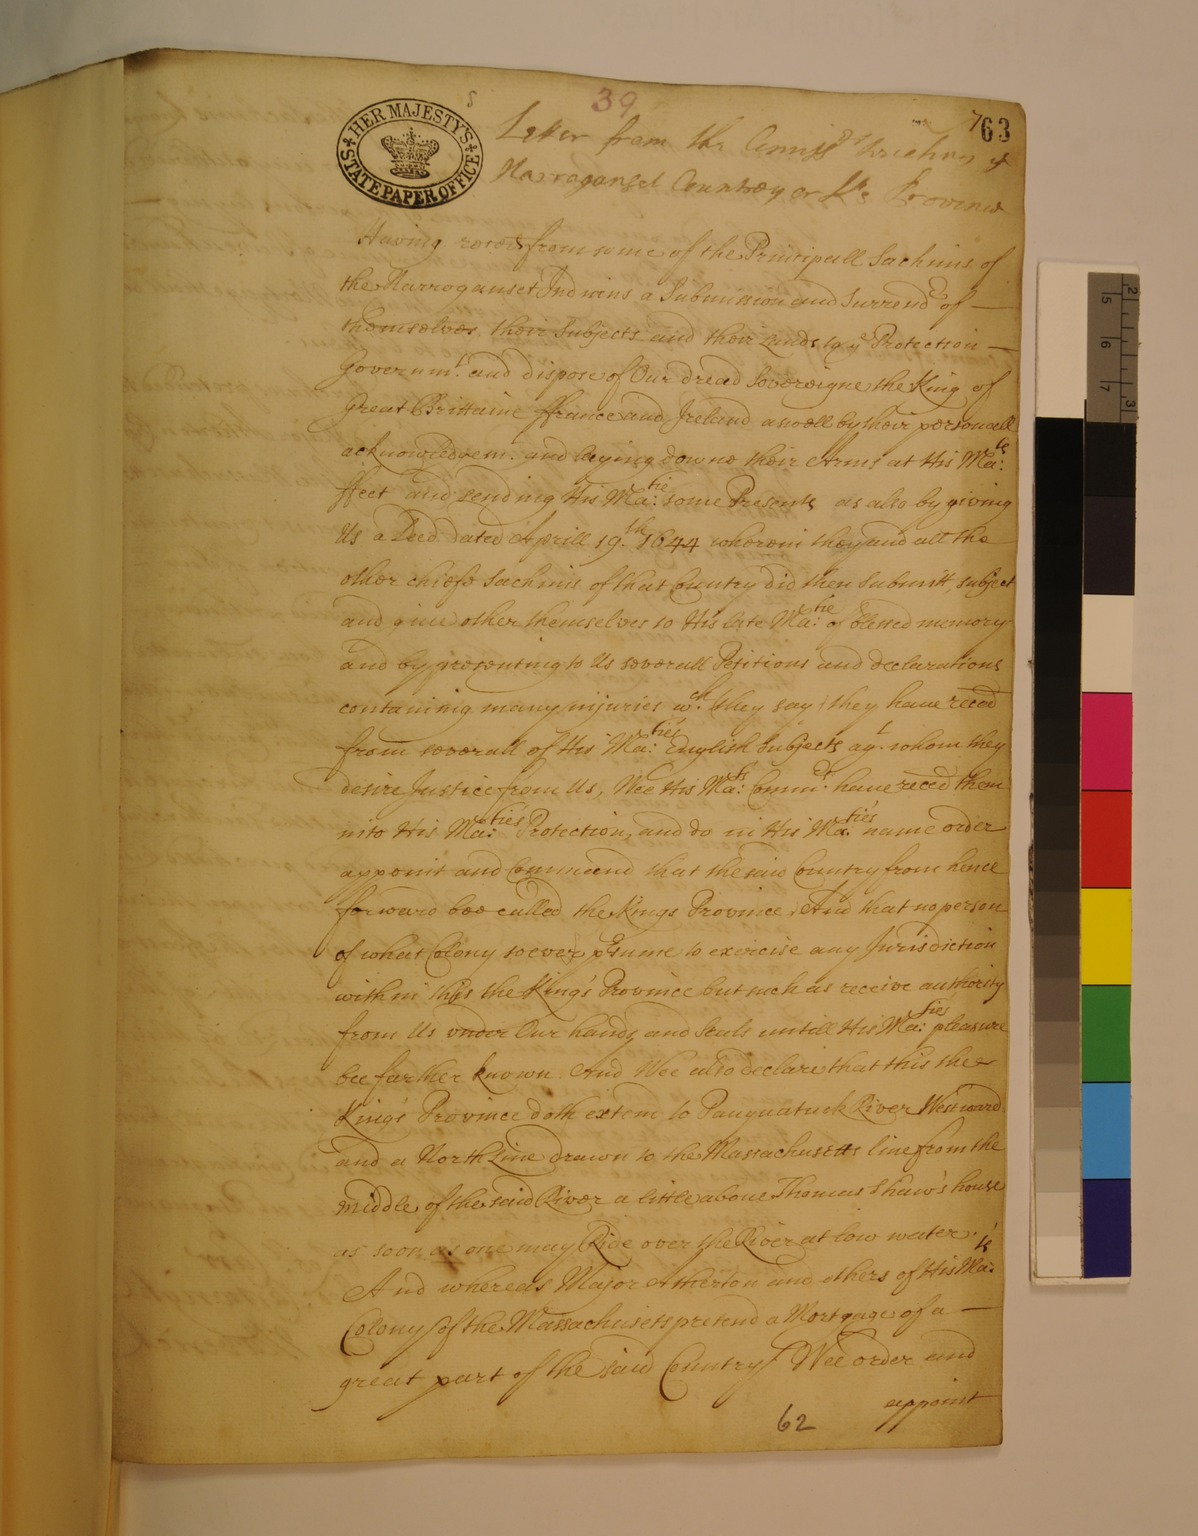 39
763
HER MAJESTY'S
STATE PAPER OFFICE
Letter from the Commiss.rs touching ye
Narroganset Countrey or K's Province
Having reced from some of the Principall Sachims of
the Narroganset Indians a Submission and Surrendr of —
themselves, their Subjects and their Lands to ye Protection —
Governmt. and dispose of Our dread Sovereigne the King of
Great Brittaine ffrance and Ireland aswell by their personall
acknowledgemt. and laying downe their Arms at His Ma:ts
ffeet and sending His Ma:tie some Presents, as also by giving
Us a Deed dated Aprill 19.th 1644 wherein they and all the
other chiefe Sachims of that Country did then Submitt, subject
and give other themselves to His late Ma:tie of blessed memory
and by presenting to Us severall Petitions and declarations
containing many injuries wch. (they say) they have reced
from severall of His Ma:ties English Subjects agt. whom they
desire Justice from Us, Wee His Ma:ts Commrs. have reced them
into His Ma:ties Protection, and do in His Ma:ties name order
appoint and Command that the said Country from hence
forward bee called the Kings Province, And that no person
of what Colony soever presume to exercise any Jurisdiction
within this the King's Province but such as receive authority
from Us under Our hands and Seals untill His Ma:ties pleasure
bee farther known. And Wee also declare that this the
King's Province doth extem to Pauquatuck River Westward
and a North Line drawn to the Massachusetts line from the
middle of the said River a little above Thomas Shaw's house
as soon as one may Ride over the River at low water.
And whereas Major Atherton and others of His Ma:ts
Colony of the Massachusets pretend a Mortgage of a —
great part of the said Country, Wee order and
appoint
62